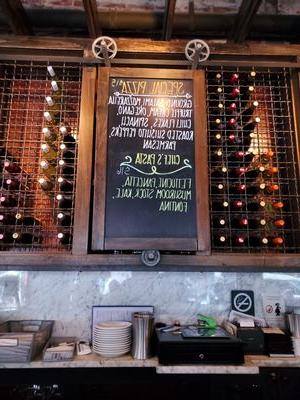 SPECIAL PIZZA $15
GROUND SALAMI, MOZZARELLA
TRUFFLE CREAM, OREGANO,
CHILI FLAKES, SMALL
ROASTED SHISHITO PEPPERS,
PARMESAN
CHEF'S PASTA
FETTUCINI, PANCETTA,
MUSHROOM STOCK, KALE,
FONTINA